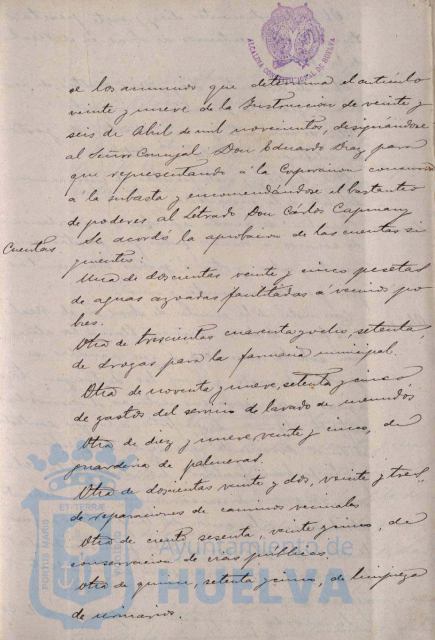 ALCALDIA CONSTITUCIONAL DE HUELVA
se los anuncios que determina el artículo
veinte y nueve de la Instrucción de veinte y
seis de Abril de mil novecientos, designándose
al Señor Concejal Don Eduardo Diaz para
que representando á la Corporación concurra
á la subasta y encomendándose el bastanteo
de poderes al Letrado Don Cárlos Capmany
Cuentas
Se acordó la aprobacion de las cuentas si
guientes:
Una de doscientas veinte y cinco pesetas
de aguas facilitadas á vecinos po
bres.
Otra de trescientas cuarenta y ocho, setenta,
de drogas para la farmacia municipal.
Otra de noventa y nueve, setenta y cinco,
de gastos del servicio de lavado de
Otra de diez y nueve, veinte y cinco, de
guarderia de palmeras.
Otra de doscientas veinte y dos, veinte y tres,
de reparaciones de caminos vecinales
Otra de ciento sesenta, veinte y cinco, de
conservacion de vias públicas.
Otra de quince, setenta y cinco, de limpieza
de urinarios.
PORTUS MARIS ET TERRÆ
Ayuntamiento de
HUELVA